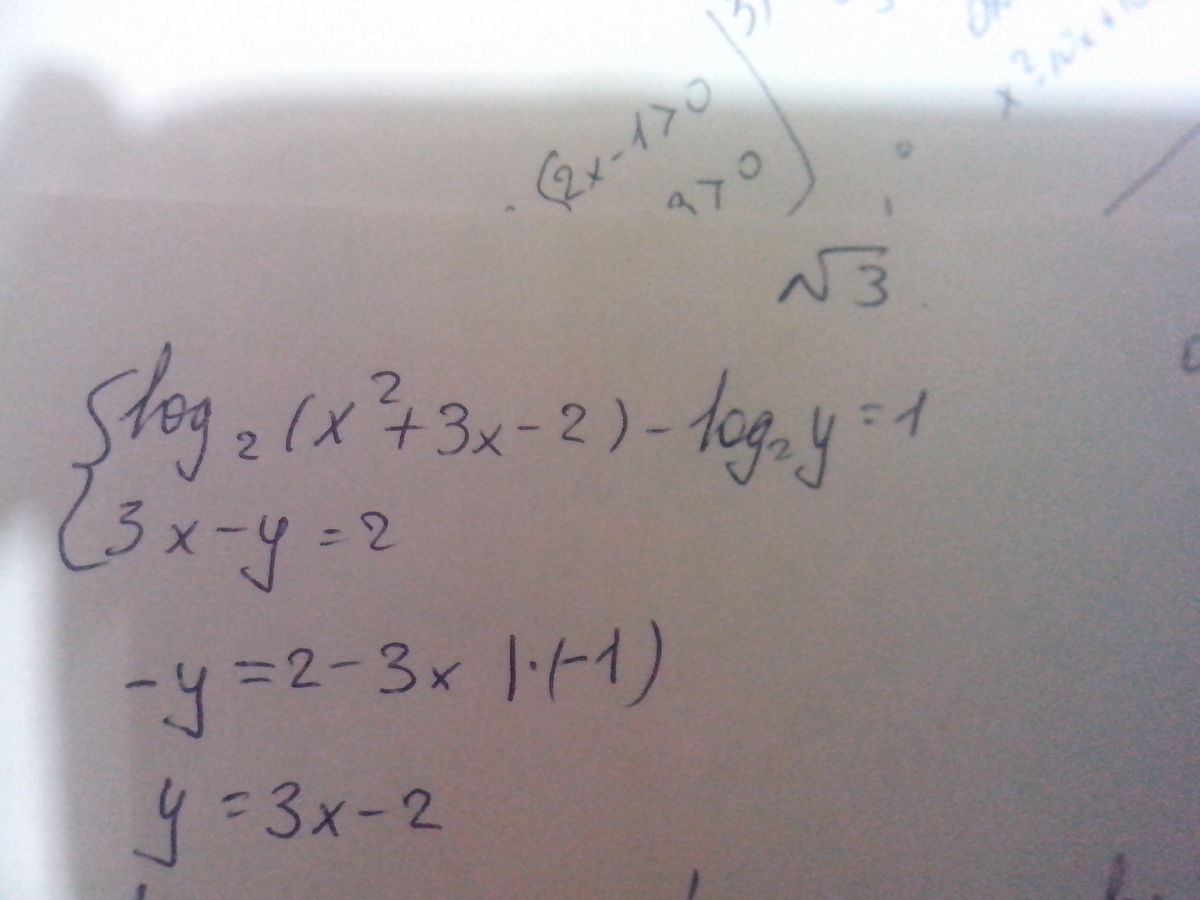 3)
x²
(2x-1>0
>0
√3
{log₂(x²+3x-2)-log₂y=1
3x-y=2
-y=2-3x |·(-1)
y=3x-2